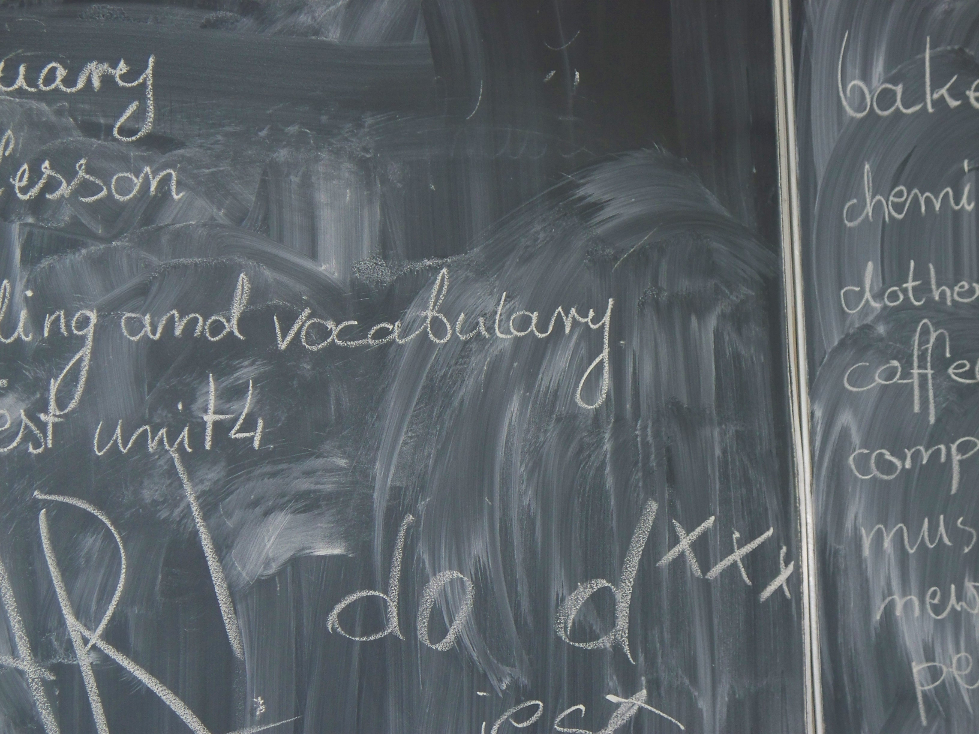 uary
lesson
ling and vocabulary
est unit 4
AR
do d xxx
jest
bake
chemi
clothe
coffe
comp
mus
new
pe